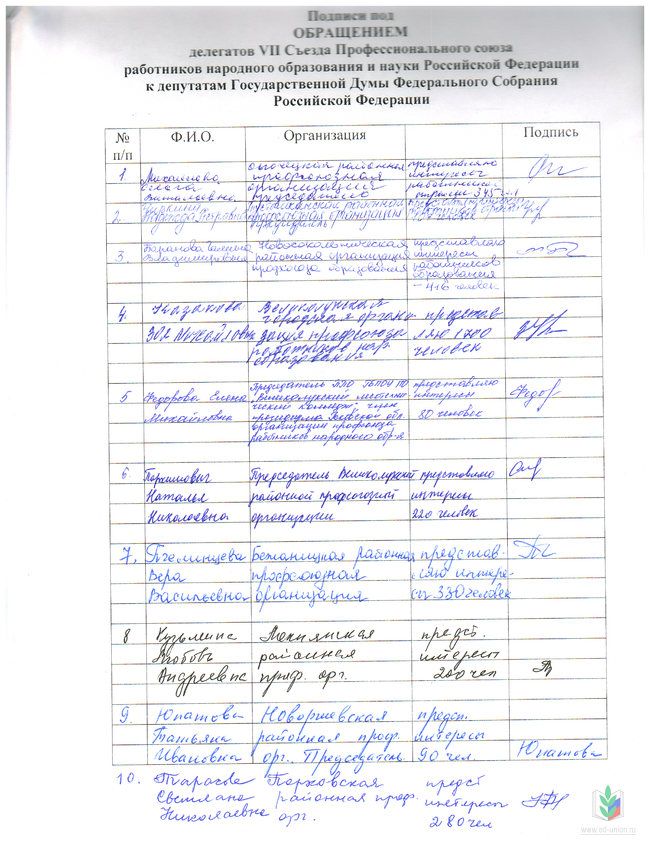 Подписи под
ОБРАЩЕНИЕМ
делегатов VII Съезда Профессионального союза
работников народного образования и науки Российской Федерации
к депутатам Государственной Думы Федерального Собрания
Российской Федерации
№ п/п Ф.И.О. Организация Подпись
1. районная представляю
Михайлова профсоюзная интересы
организация работников
Витальевна председатель 345 чел
2. районной
Петровна организации
3. Баранова Галина Новосокольническая представляю
Владимировна районная организация интересы
профсоюза образования работников
образования
– 416 человек
4. Казакова Великолукская
городская органи- представ
Зоя Михайловна зация профсоюза ляю 1700
работников нар. человек
образования
5 Федорова Елена Председатель ППО ГБПОУ ПО представляю
"Великолукский медицин- интересы
Михайловна ческий колледж", член
президиума Псковской обл. 80 человек
организации профсоюза
работников народного обр-я
6. Председатель Великолукской представляю
Наталья районной профсоюзной интересы
Николаевна организации 220 человек
7. Пчелинцева Бежаницкая районная представ-
Вера профсоюзная ляю интере-
Васильевна организация сы 330 человек
8 Кузьмина Локнянская предст.
Любовь районная интересы
Андреевна проф. орг. 200 чел
9. Юпатова Новоржевская предст.
Татьяна районная проф. интересы
Ивановна орг. Председатель 90 чел. Юпатова
10. Тарасова Порховская предст
Светлана районная проф. интересы
Николаевна орг. 280 чел
www.ed-union.ru